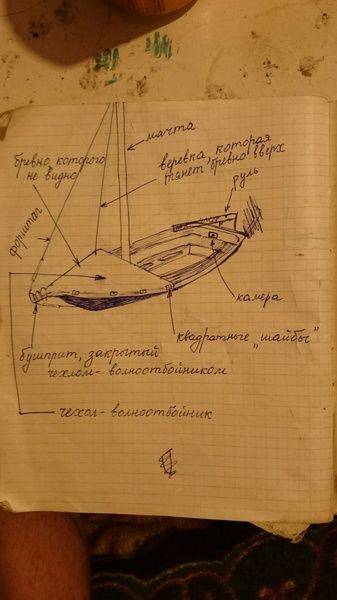 мачта
бревно, которого
не видно
веревка, которая
тянет бревно вверх
руль
форштаг
камера
квадратные „шайбы"
бушприт, закрытый
чехлом-волноотбойником
чехол-волноотбойник